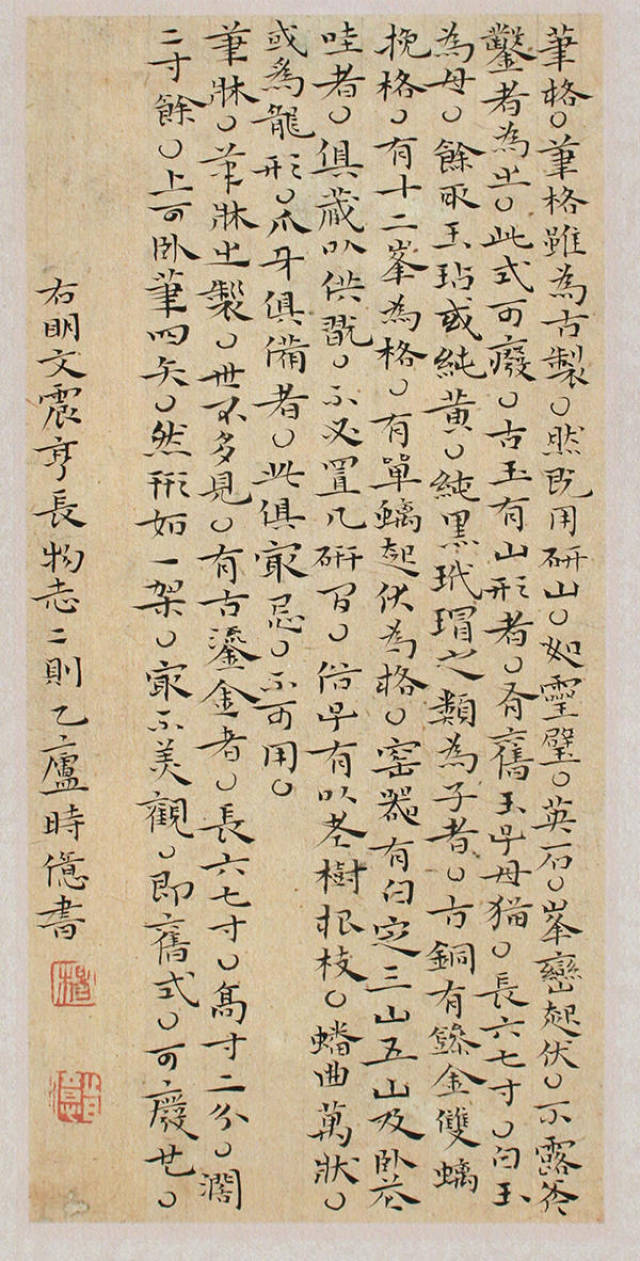 筆格。筆格雖為古製。然既用研山。如靈璧。英石。峯巒起伏。不露斧
鑿者為之。此式可廢。古玉有山形者。有舊玉子母猫。長六七寸。白玉
為母。餘取玉玷或純黃。純黑玳瑁之類為子者。古銅有鏒金雙螭
挽格。有十二峯為格。有單螭起伏為格。窑器有白定三山五山及卧花
哇者。俱藏以供翫。不必置几研間。俗子有以老樹根枝。蟠曲萬狀。
或為龍形。爪牙俱備者。此俱寂忌。不可用。
筆牀。筆牀之製。世不多見。有古鎏金者。長六七寸。高寸二分。濶
二寸餘。上可卧筆四矢。然形如一架。寂不美觀。即舊式。可廢也。
右明文震亨長物志二則乙廬時億書